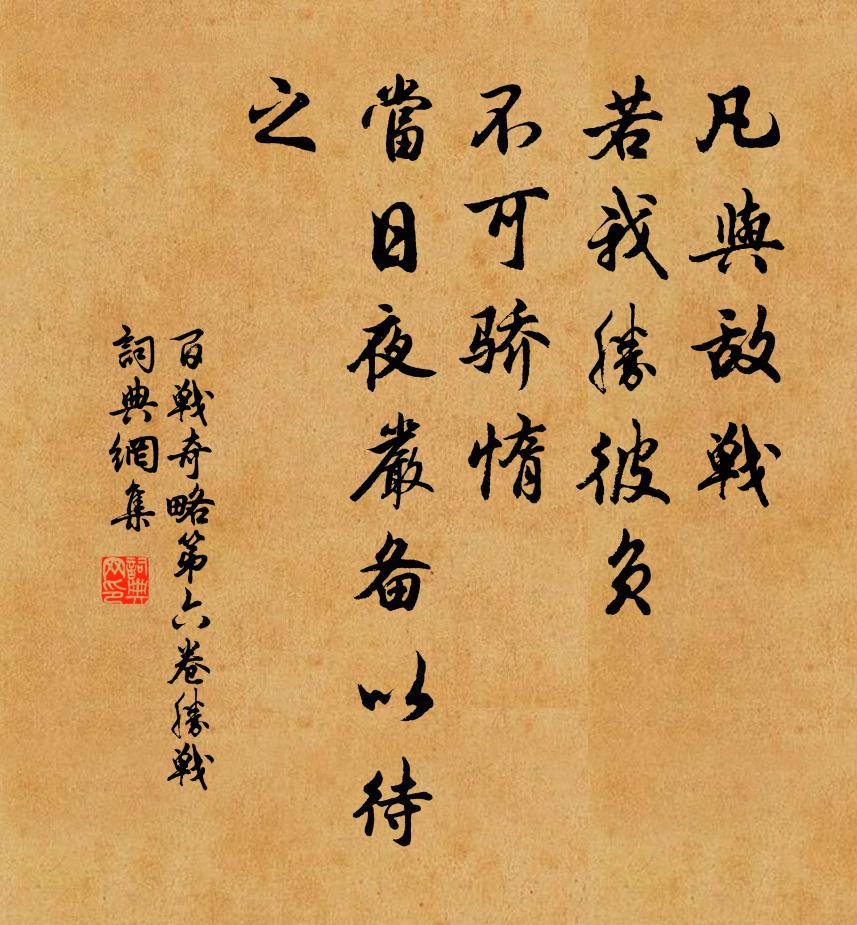 凡與敌戰
若我勝彼负
不可骄惰
當日夜嚴备以待
之
百戰奇略第六卷勝戰
詞典網集
詞典网印